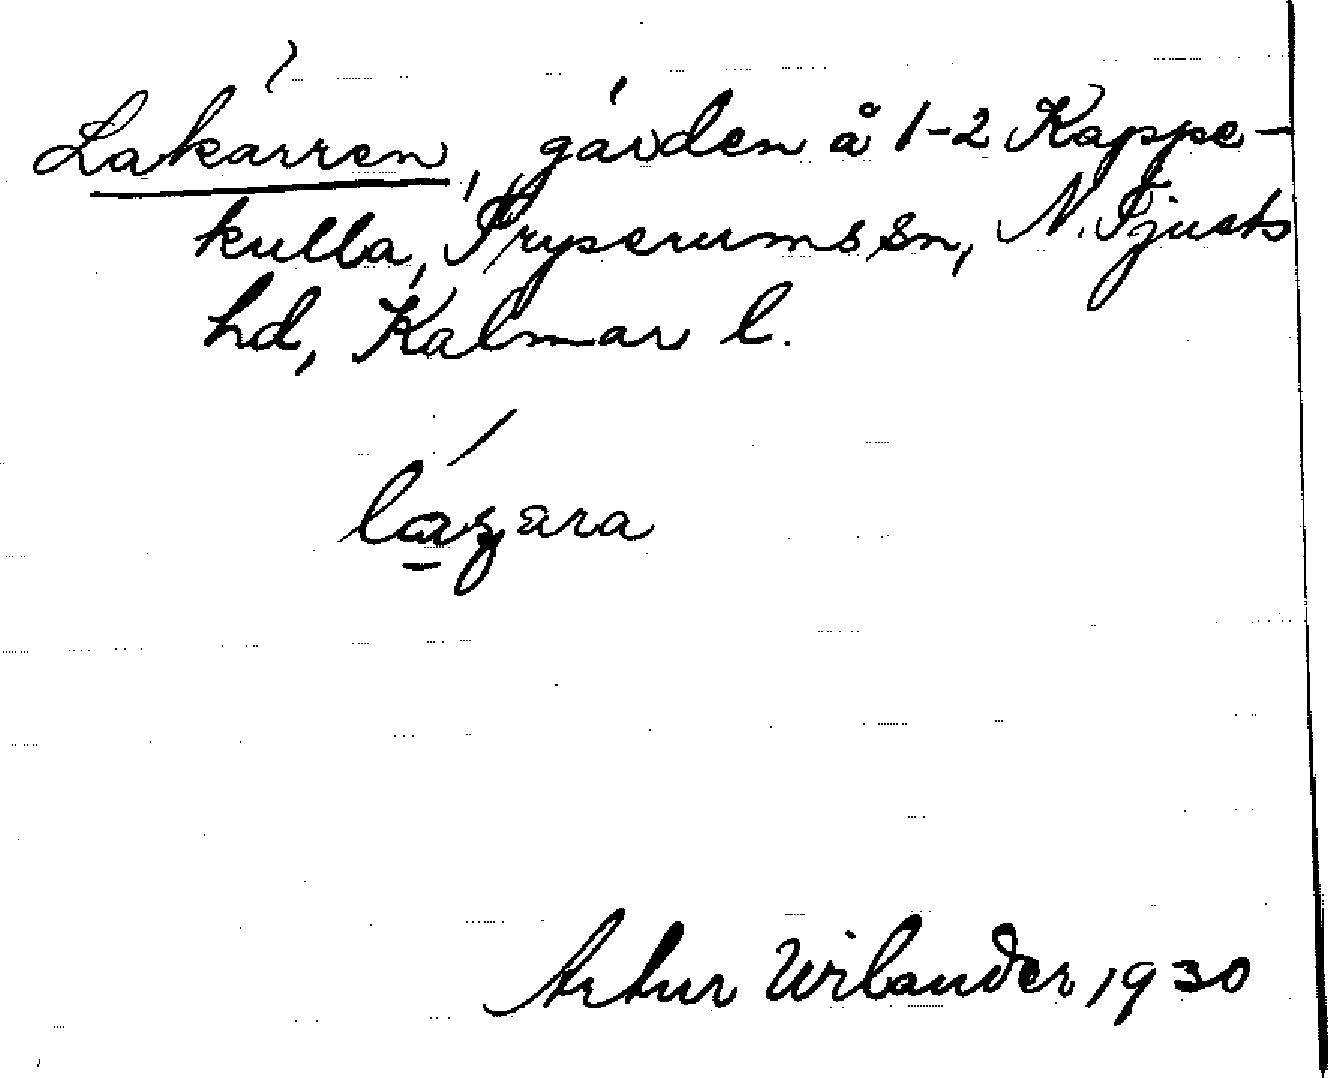 Lakärren, gården å 1-2 Kappe-
kulla, Tryserums sn, N. Tjusts
hd, Kalmar l.
Artur Wilander 1930